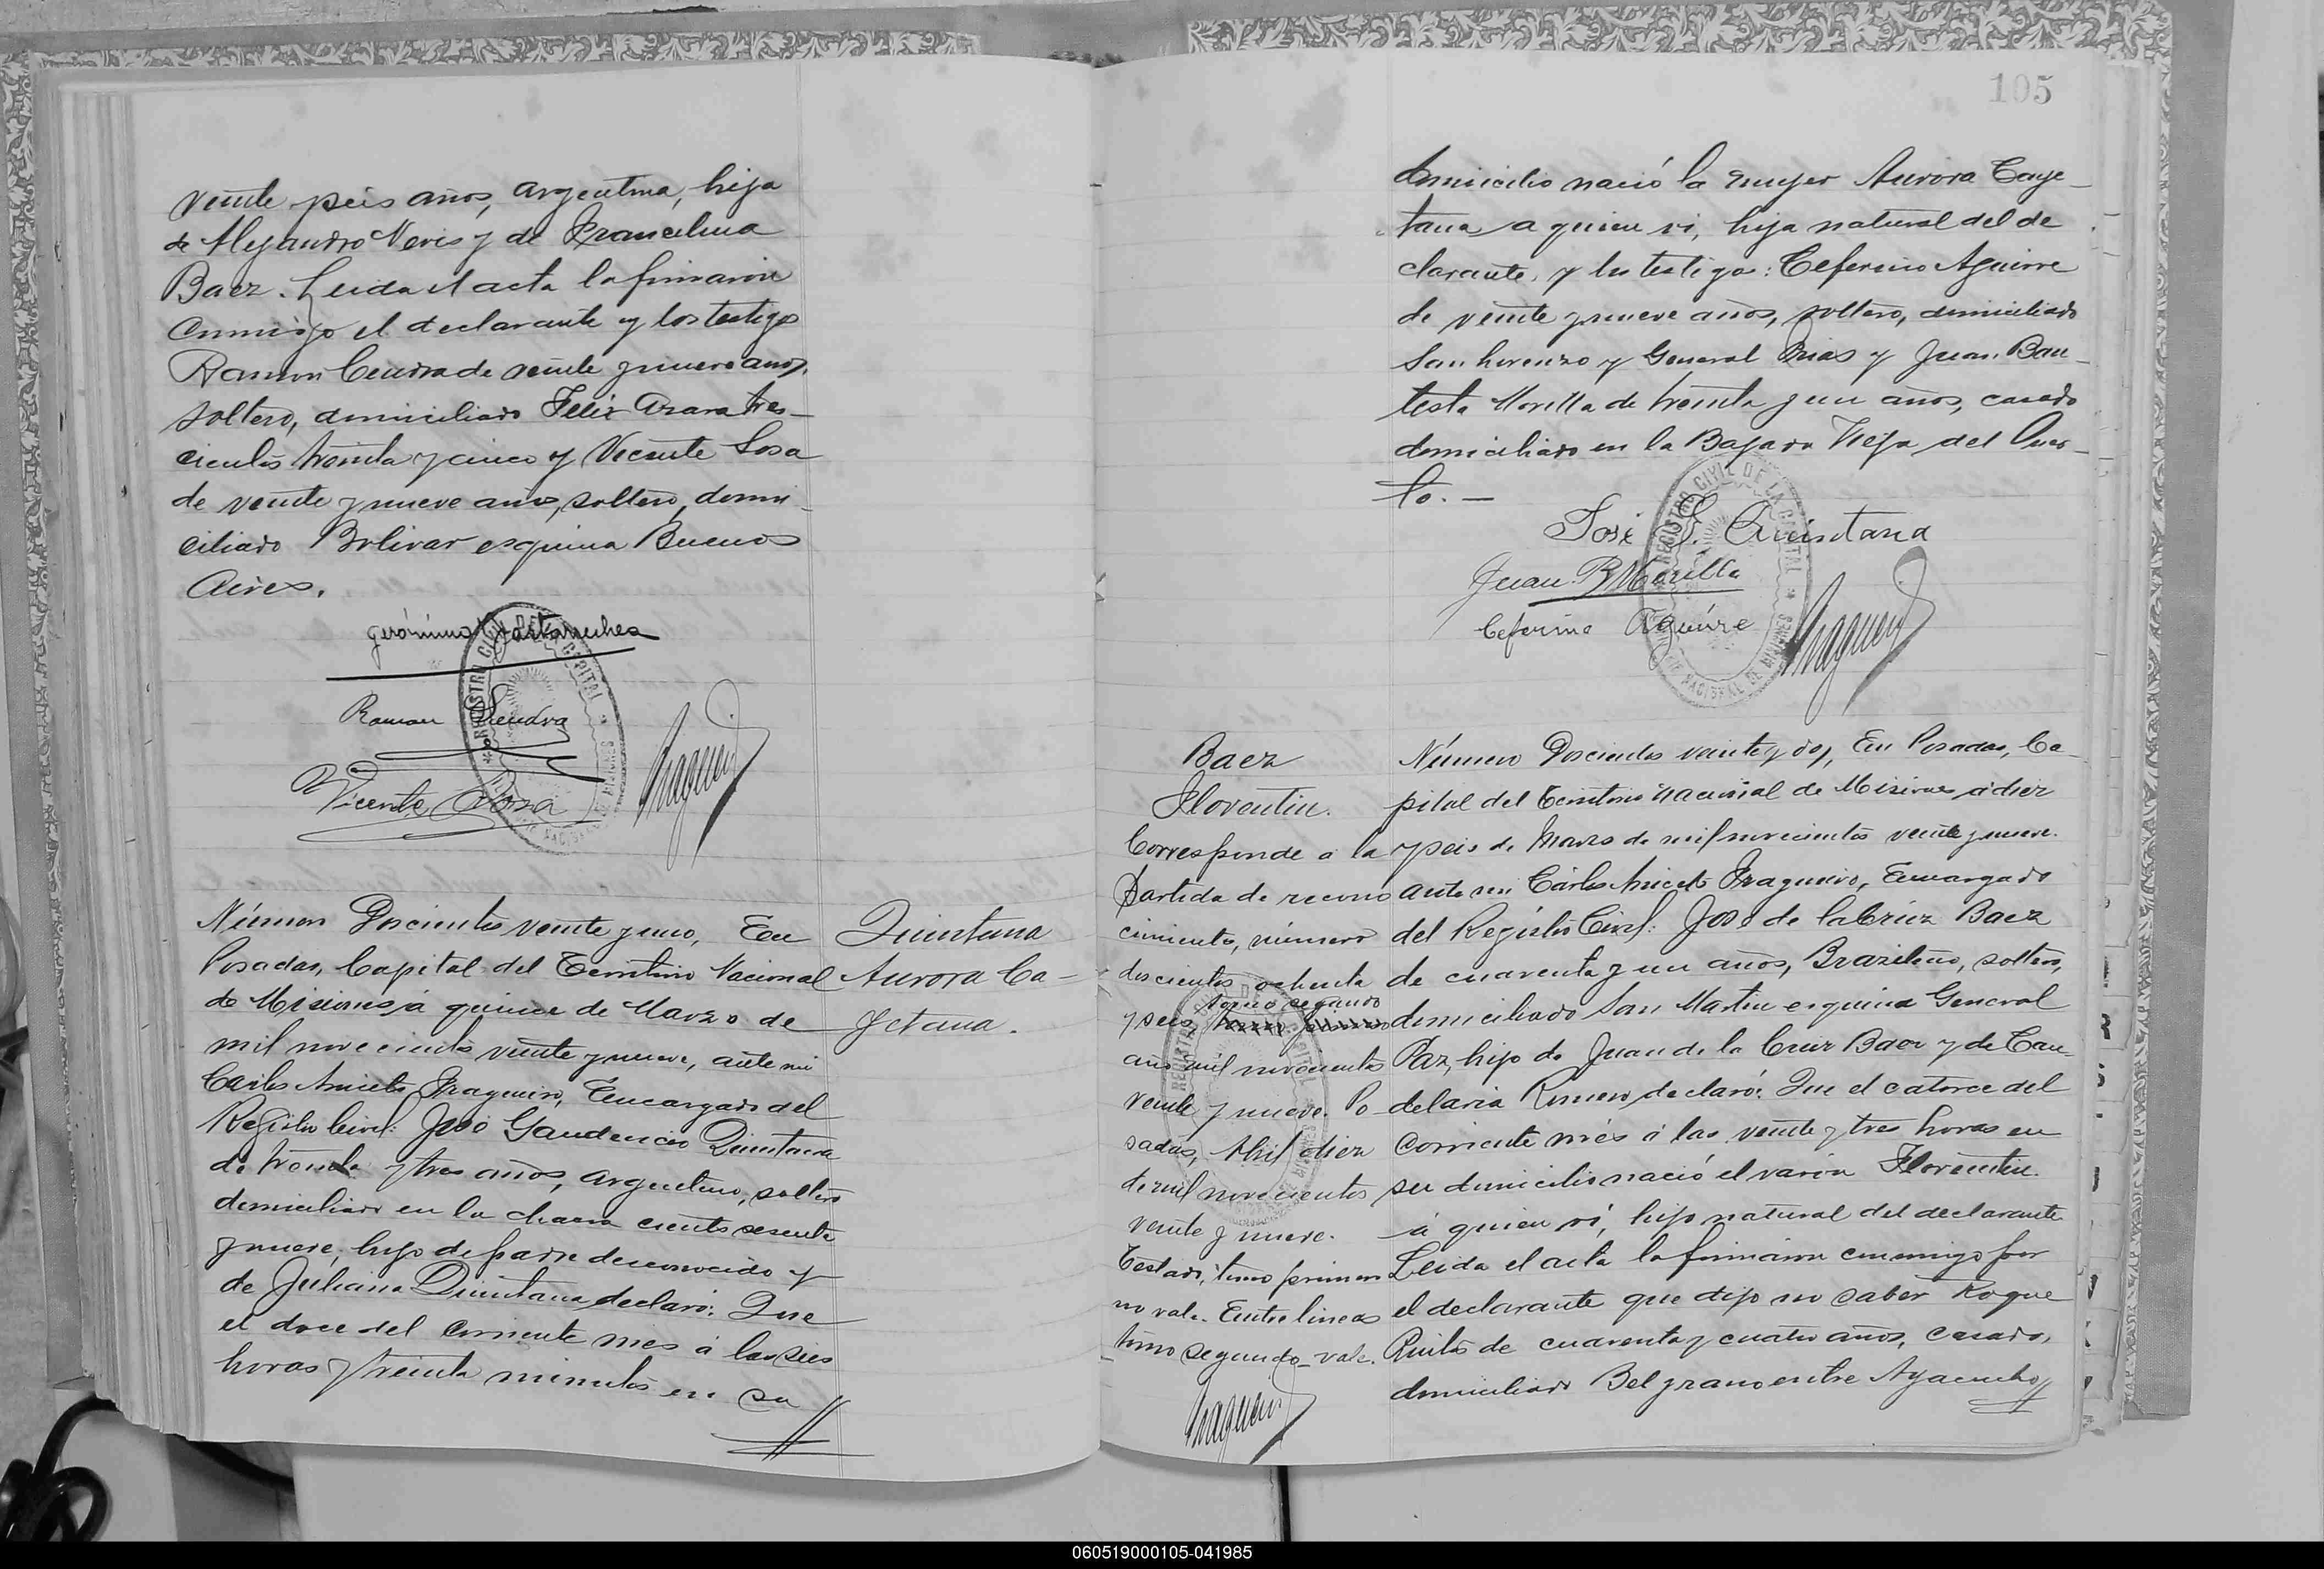 veinte y seis años, argentina, hija
de Alejandro Neris y de Francelina
Baez. Leida el acta la firmaron
conmigo el declarante y los testigos
Ramon Cendra de veinte y nueve años,
soltero, domiciliado Felix Azara tres-
cientos treinta y cinco y Vicente Sosa
de veinte y nueve años, soltero, domi-
ciliado Bolivar esquina Buenos
Aires.
Gerónimo
Ramon Cendra
Vicente Sosa
REGISTRO CIVIL DE LA CAPITAL
Número Doscientos veinte y uno, En
Posadas, Capital del Territorio Nacional
de Misiones, á quince de Marzo de
mil novecientos veinte y nueve, ante mi
Carlos Aniceto Fragueiro, Encargado del
Registro Civil: José Gaudencio Quintana
de treinta y tres años, argentino, soltero
domiciliado en la chacra ciento sesenta
y nueve, hijo de padre desconocido y
de Juliana Quintana declaró: Que
el doce del corriente mes á las seis
horas y treinta minutos en su
Quintana
Aurora Ca-
yetana.
105
domicilio nació la mujer Aurora Caye-
tana a quien vi, hija natural del de
clarante, y los testigos: Ceferino Aguirre
de veinte y nueve años, soltero, domiciliado
San Lorenzo y General Rias y Juan Bau-
tista Morilla de treinta y un años, casado
domiciliado en la Bajada Vieja del Puer-
to. —
José G. Quintana
Juan B Morilla
Ceferino Aguirre
REGISTRO CIVIL DE LA CAPITAL
Baez
Florentin.
Corresponde a la
partida de recono
cimiento, número
doscientos ochenta
tomo segundo
y seis, tomo primero
año mil novecientos
veinte y nueve. Po-
sadas, Abril diez
de mil novecientos
veinte y nueve.
Testado, tomo primero
no vale. Entre lineas
tomo segundo - vale.
Número Doscientos veinte y dos, En Posadas, Ca-
pital del Territorio Nacional de Misiones á diez
y seis de Marzo de mil novecientos veinte y nueve.
ante mi Cárlos Aniceto Fragueiro, Encargado
del Registro Civil: José de la Cruz Baez
de cuarenta y un años, Brazileño, soltero,
domiciliado San Martin esquina General
Paz, hijo de Juan de la Cruz Baez y de Can-
delaria Romero, declaró: Que el catorce del
corriente més á las veinte y tres horas en
su domicilio nació el varón Florentin.
á quien ví, hijo natural del declarante
Leida el acta la firmaron conmigo por
el declarante que dijo no saber Roque
de cuarenta y cuatro años, casado,
domiciliado Belgrano entre Ayacucho
060519000105-041985